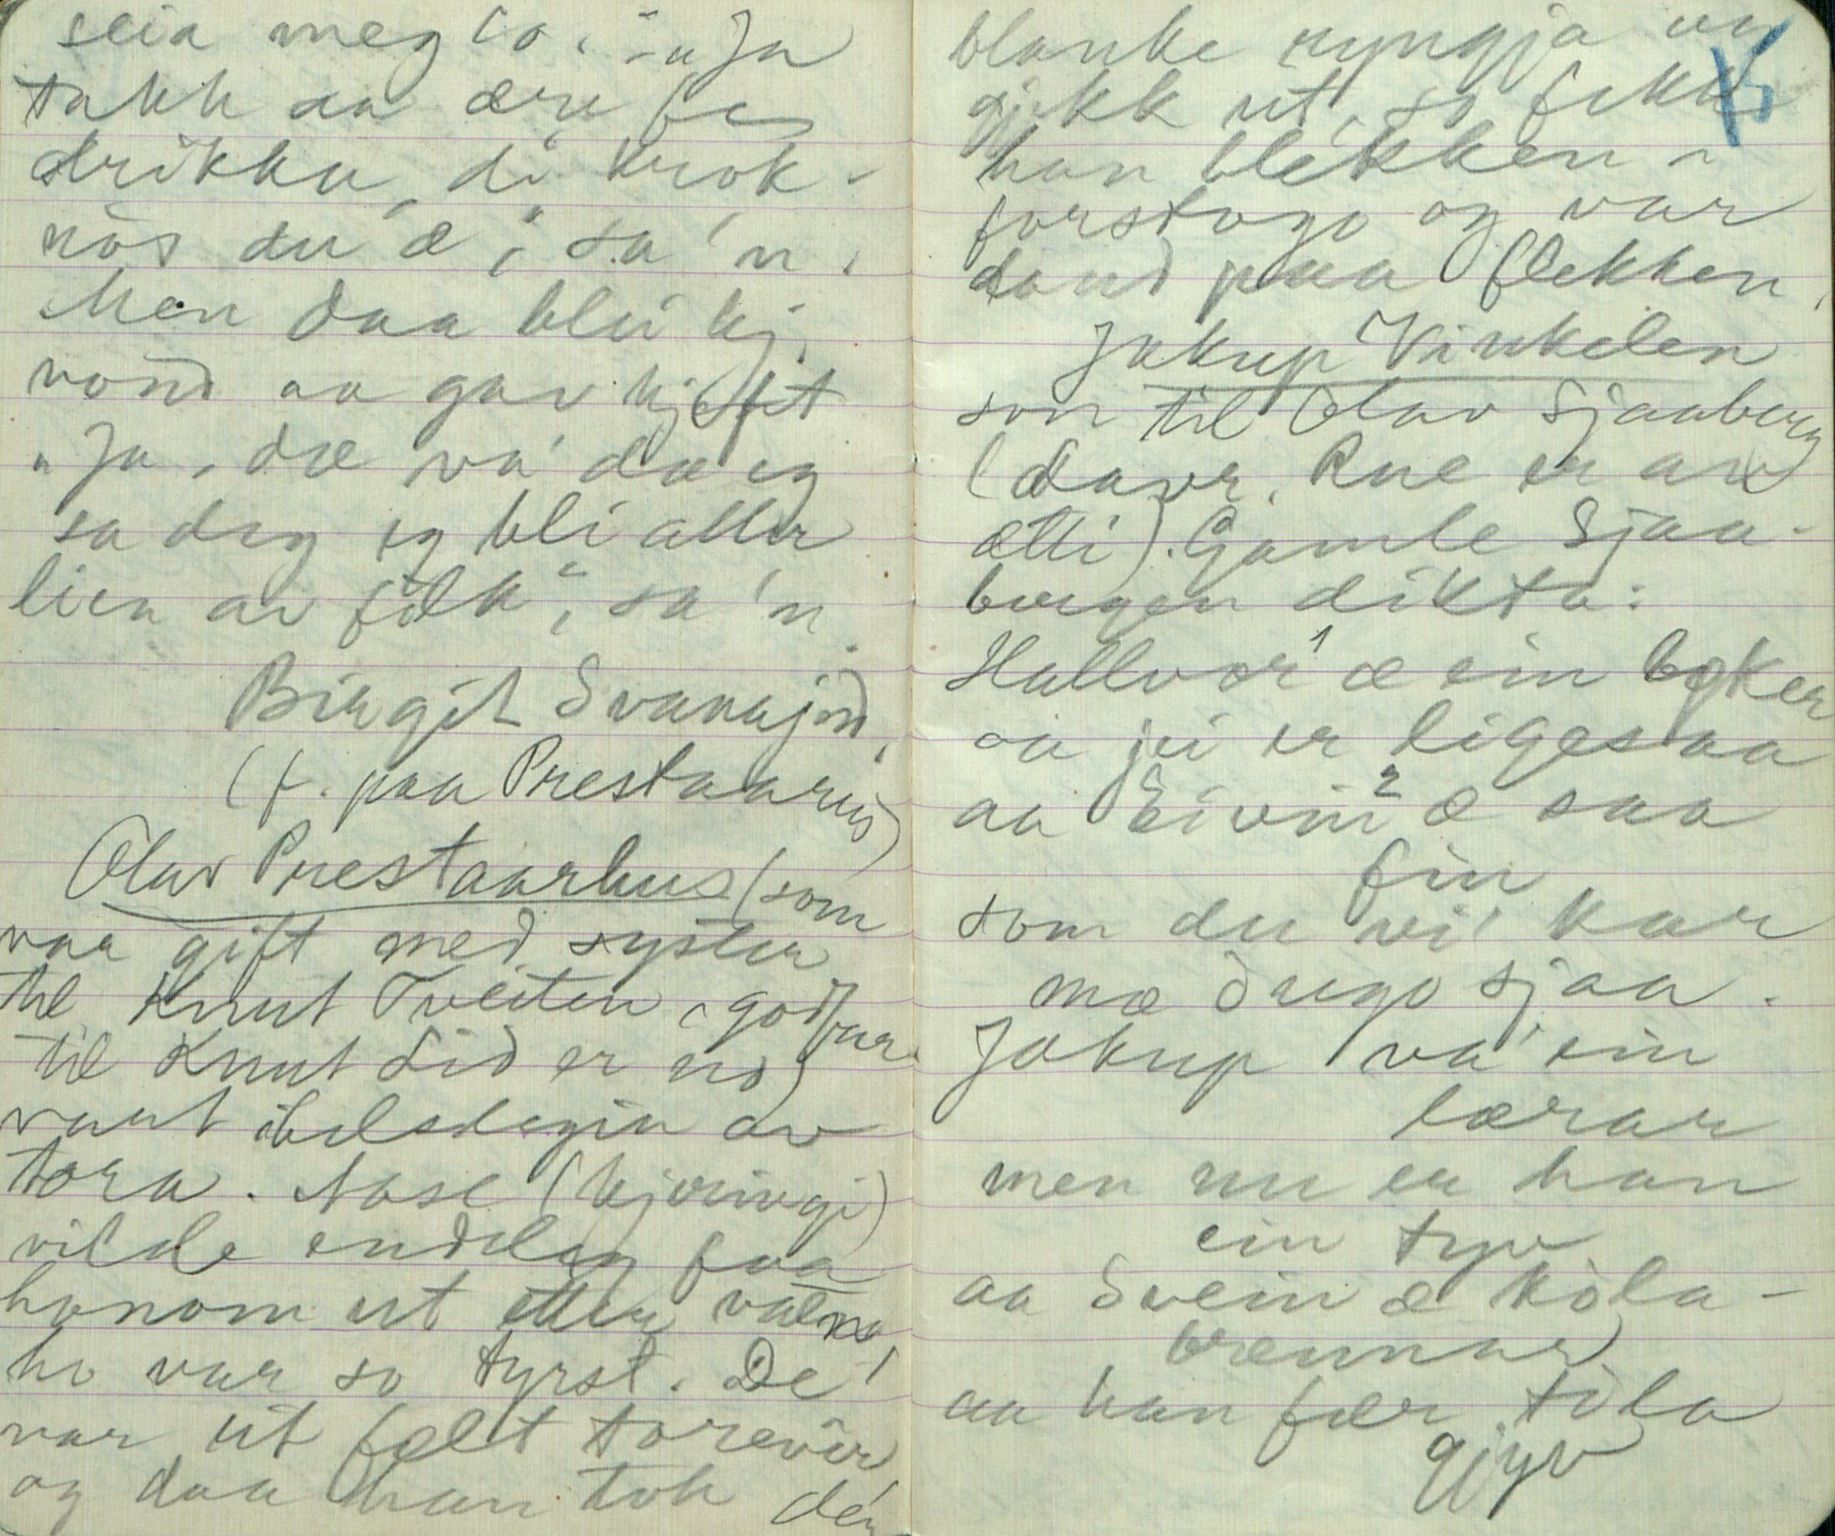 seia meg to." "Ja
takk aa ære fe
drikka, di krok-
nòs du æ", sa 'n.
Men daa blei kj.
vond aa gav kjeft
"Ja, dæ va' dæ eg
sa deg eg bli aller
lien av folk", sa 'n.
Birgit Svanajord,
(f. paa Prestaarhus)
Olav Prestaarhus (som
var gift med syster
til Knut Tveiten, godfar
til Knut Lid er no)
vart ihelslegin av
tora. Aase (kjeringi)
vilde endeleg faa
honom ut etter vatn,
ho var so tyrst. De'
var eit fælt torevêr
og daa han tok den
blanke ryngja og
gjekk ut, so fekk
15
han blekken i
forstogo og var
daud paa flekken.
Jakup Vinkelen
son til Olav Sjaaberg
(Davr. Rue er av
ætti). Gamle Sjaa-
bergen dikta:
Hallvor¹ æ ein bøker
aa jei er ligesaa
aa Eivin² æ saa
fin
som du vi' kar
mæ augo sjaa.
Jakup va' ein
lærar
men nu er han
ein tyv
aa Svein æ kòla-
brennar
aa han fær tòla
gjyv